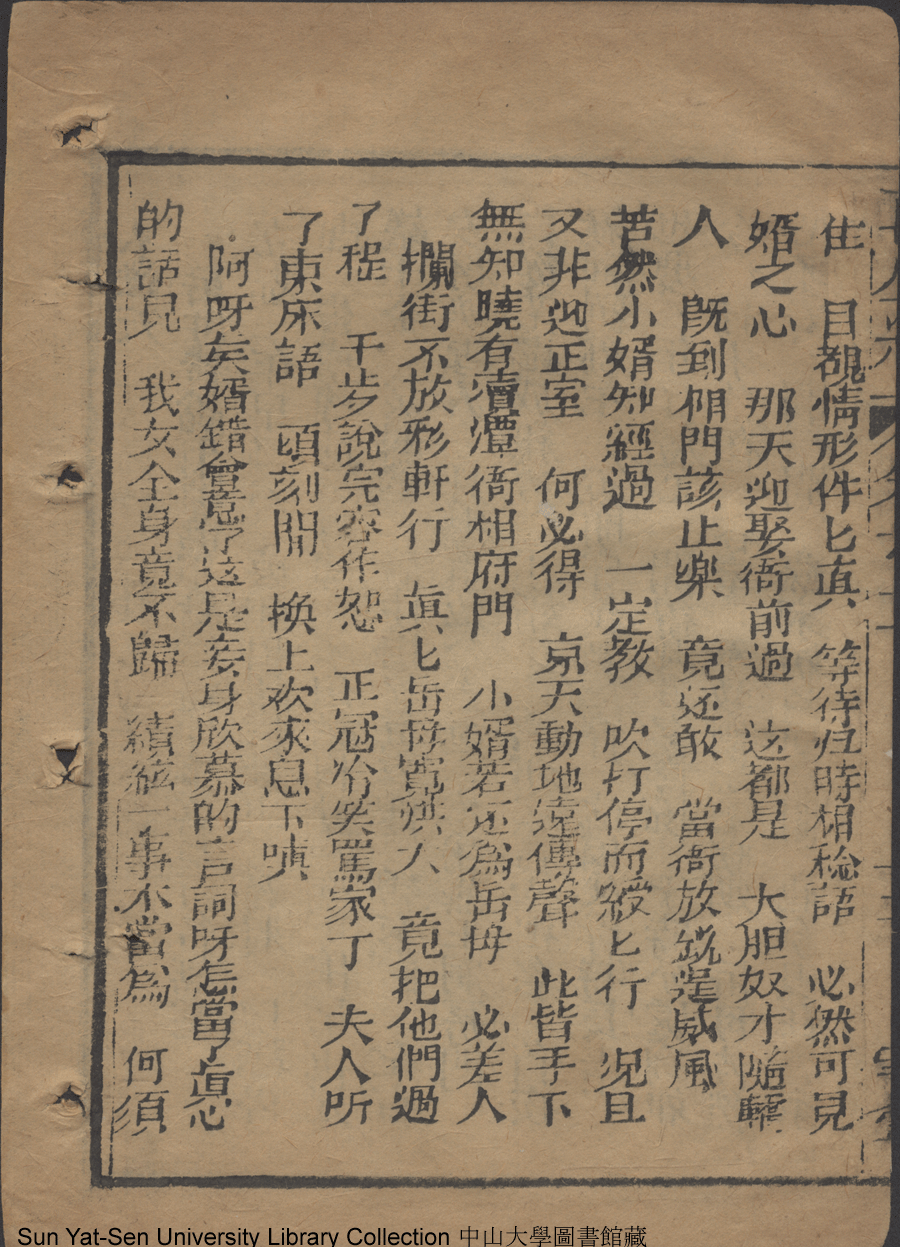 住　目覩情形件匕真　等待归時相稔語　必然可見
婿之心　那天迎娶衙前過　这都是　大胆奴才隨轎
人　既到相門該止樂　竟还敢　當衙放銃逞威風
若然小婿知經過　一定教　吹打停而緩匕行　况且
又非迎正室　何必得　京天動地遠傳聲　此皆手下
無知曉有瀆潭衙相府門　小婿若还為岳母　必差人
攔街不放彩軒行　真匕岳母寬洪大　竟把他們過
了程　千岁說完容作恕　正冠冷笑罵家丁　夫人听
了東床語　頃刻間　換上欢來息下嗔
阿呀矣婿錯會意了这是妾身欣慕的言詞呀怎當了真心
的話見　我女全身竟不歸　續絃一事不當為　何須